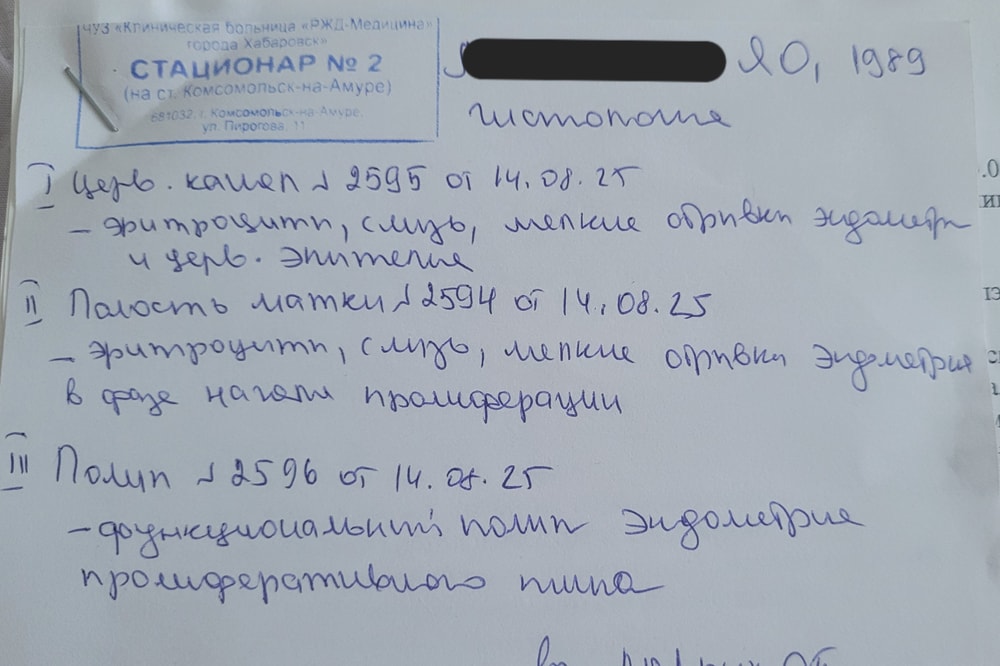 ЧУЗ «Клиническая больница «РЖД-Медицина»
города Хабаровск»
СТАЦИОНАР № 2
(на ст. Комсомольск-на-Амуре)
681032, г. Комсомольск-на-Амуре,
ул. Пирогова, 11
Я О, 1989
гистология
I Церв. канал № 2595 от 14.08.25
– эритроциты, слизь, мелкие обрывки эндометр
и церв. эпителия
II Полость матки № 2594 от 14.08.25
– эритроциты, слизь, мелкие обрывки эндометрия
в фазе начала пролиферации
III Полип № 2596 от 14.08.25
– функциональный полип эндометрия
пролиферативного типа